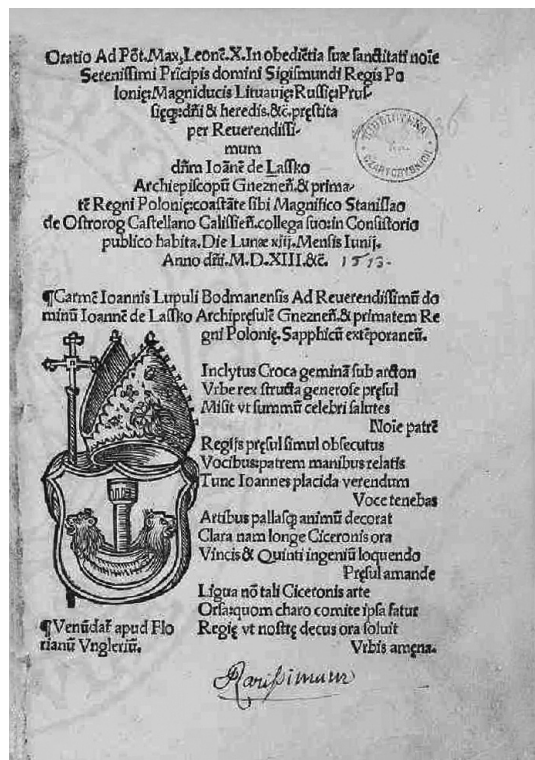 Oratio Ad Põt. Max. Leonẽ. X. In obediẽtia suæ sanctitati noĩe
Serenissimi Prĩcipis domini Sigismundi Regis Po
lonię: Magniducis Lituauię: Russię: Prus-
sięq; dñi & heredis. &c̃. pręstita
per Reuerendissi-
mum
dñm Ioãnẽ de Lassko
Archiepiscopũ Gnezneñ. & prima-
tẽ Regni Polonię: coastãte sibi Magnifico Stanislao
de Ostrorog Castellano Calissieñ. collega suo: in Consistorio
publico habita. Die Lunæ xiij. Mensis Iunij.
Anno dñi. M.D.XIII. &c̃. 1513.
¶ Carmẽ Ioannis Lupuli Bodmanensis Ad Reuerendissimũ do
minũ Ioannẽ de Lassko Archipręsulẽ Gnezneñ. & primatem Re
gni Polonię. Sapphicũ extẽporaneũ.
Inclytus Croca geminã sub arcton
Vrbe rex structa generose pręsul
Misit vt summũ celebri salutes
Noĩe patrẽ
Regijs pręsul simul obsecutus
Vocibus: patrem manibus relatis
Tunc Ioannes placida verendum
Voce tenebas
Artibus pallasq; animũ decorat
Clara nam longe Ciceronis ora
Vincis & Quinti ingeniũ loquendo
Pręsul amande
Ligua nõ tali Ciceronis arte
Orsa: quom charo comite ipsa fatur
Regię vt nostrę decus ora soluit
Vrbis amęna.
¶ Venũdat̃ apud Flo
rianũ Vngleriũ.
Rarissimum